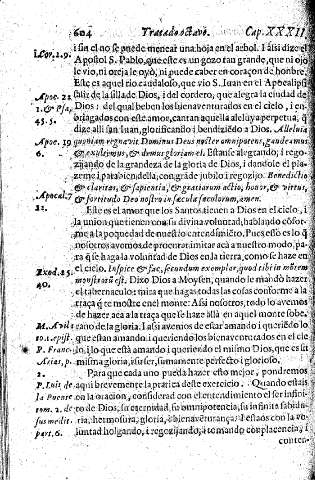 604 Tratado octavo. Cap. XXXII.
i sin el no se puede menear una hoja en el arbol. I assi dize el
1. Cor. 2. 9. Apostol S. Pablo, que este es un gozo tan grande, que ni ojo
le vio, ni oreja le oyò, ni puede caber en coraçon de hombre.
Este es aquel rio caudaloso, que vio S. Iuan en el Apocalipsi
Apoc. 21 salir de la silla de Dios, i del cordero, que alegra la ciudad de
1. & Psa. Dios: del qual beben los bienaventurados en el cielo, i en-
45. 5. briagados con este amor, cantan aquella alleluya perpetua, q̃
dize alli san Iuan, glorificando i bendiziẽdo a Dios. Alleluia
Apoc. 19 quoniam regnavit Dominus Deus noster omnipotens, gaudeamus
6. & exultemus, & demus gloriam ei. Estanse alegrando, i rego-
zijando de la grandeza de la gloria de Dios, i dandole el pla-
zeme, i parabien della, con grãde jubilo i regozijo. Benedictio
Apocal. 7 & claritas, & sapientia, & gratiarum actio, honor, & virtus,
12. & fortitudo Deo nostro in sæcula sæculorum, amen.
Este es el amor que los Santos tienen a Dios en el cielo, i
la union que tienen con su divina voluntad, hablando cõfor-
me a la poquedad de nuestro entendimiẽto. Pues esto es lo q̃
nosotros avemos de procurar imitar acà a nuestro modo, pa-
ra q̃ se haga la voluntad de Dios en la tierra, como se haze en
Exod. 25. el cielo. Inspice & fac, secundum exemplar, quod tibi in mõte
40. monstratum est. Dixo Dios a Moysen, quando le mandò hazer
el tabernaculo: mira que hagas todas las cosas conforme a la
traça q̃ te mostre en el monte: Assi nosotros, todo lo avemos
de hazer acà a la traça que se haze allà en aquel monte sobe-
M. Avila rano de la gloria. I assi avemos de estar amando i queriẽdo lo
que estan amando i queriendo los bienaventurados en el cie
P. Franc. lo, i lo que està amando i queriendo el mismo Dios, que es su
Arias, p. misma gloria, i su ser, sumamente perfecto i glorioso.
2. Para que cada uno pueda hazer esto mejor, pondremos
P. Luis de aqui brevemente la pratica deste exercicio. Quando estais
la Puente en la oracion, considerad con el entendimiento el ser infini-
tom. 2. de ro de Dios, su eternidad, su omnipotencia, su infinita sabidu-
sus medit. ria, hermosura, gloria, i bienaventurança: I estaos con la vo-
part. 6. luntad holgando, i regozijando, i tomando complacencia, i
conten-